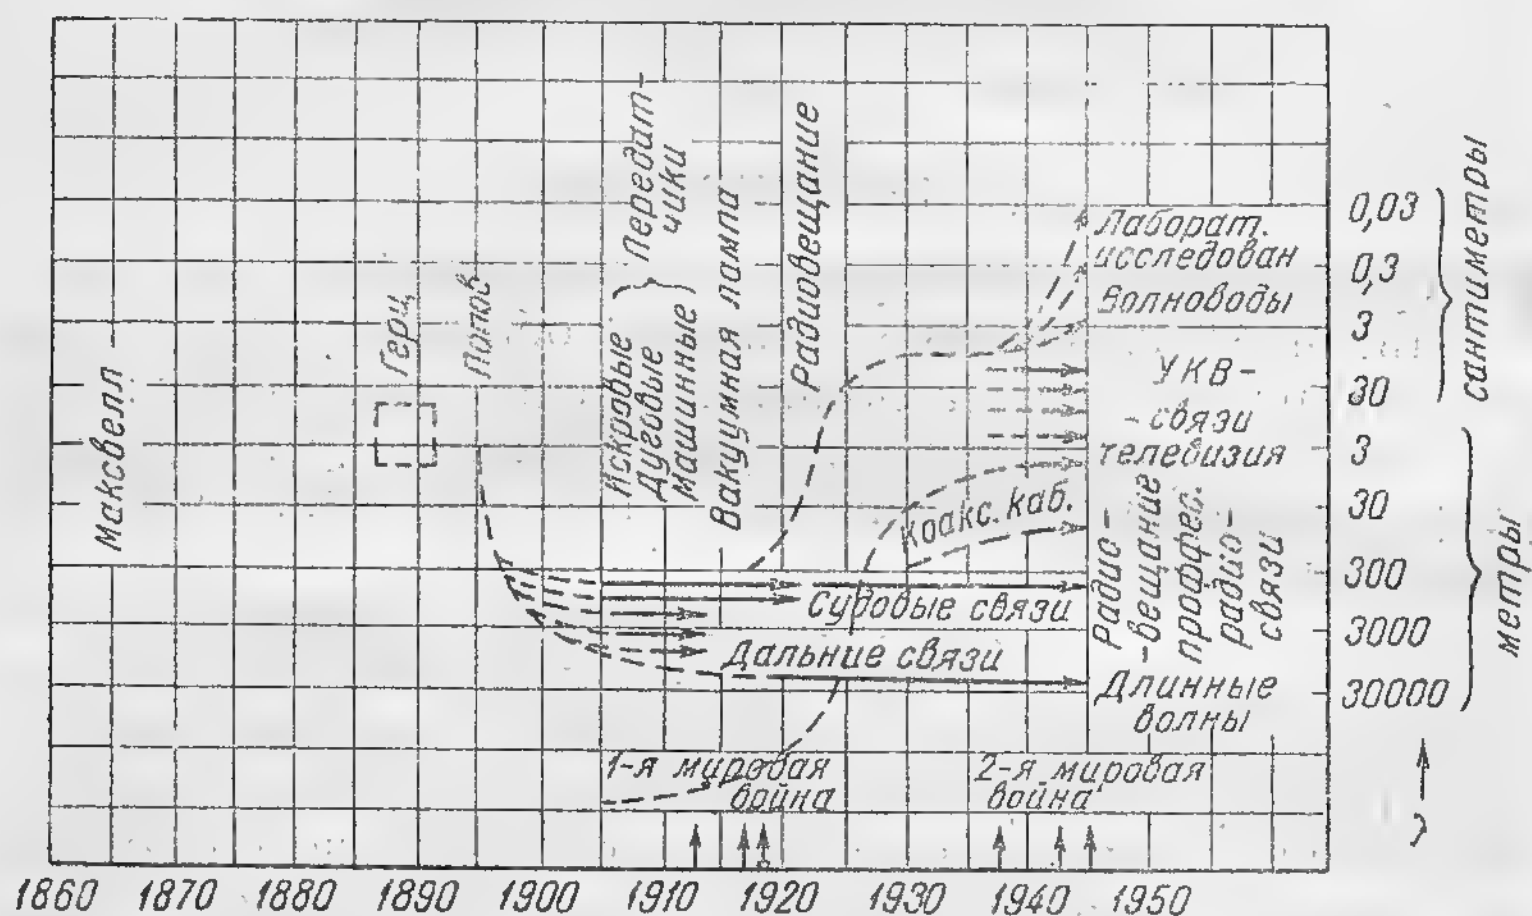 Максвелл
Герц
Попов
Искровые
Дуговые
Машинные
Передат-
чики
Вакуумная лампа
Радиовещание
Лаборат.
исследован
Волноводы
УКВ -
- связи
телевизия
Коакс. каб.
Радио -
- вещание
професс.
радио -
связи
Судовые связи
Дальние связи
Длинные
волны
1-я мировая
война
2-я мировая
война
0,03
0,3
3
30
сантиметры
3
30
300
3000
30000
метры
λ
1860 1870 1880 1890 1900 1910 1920 1930 1940 1950